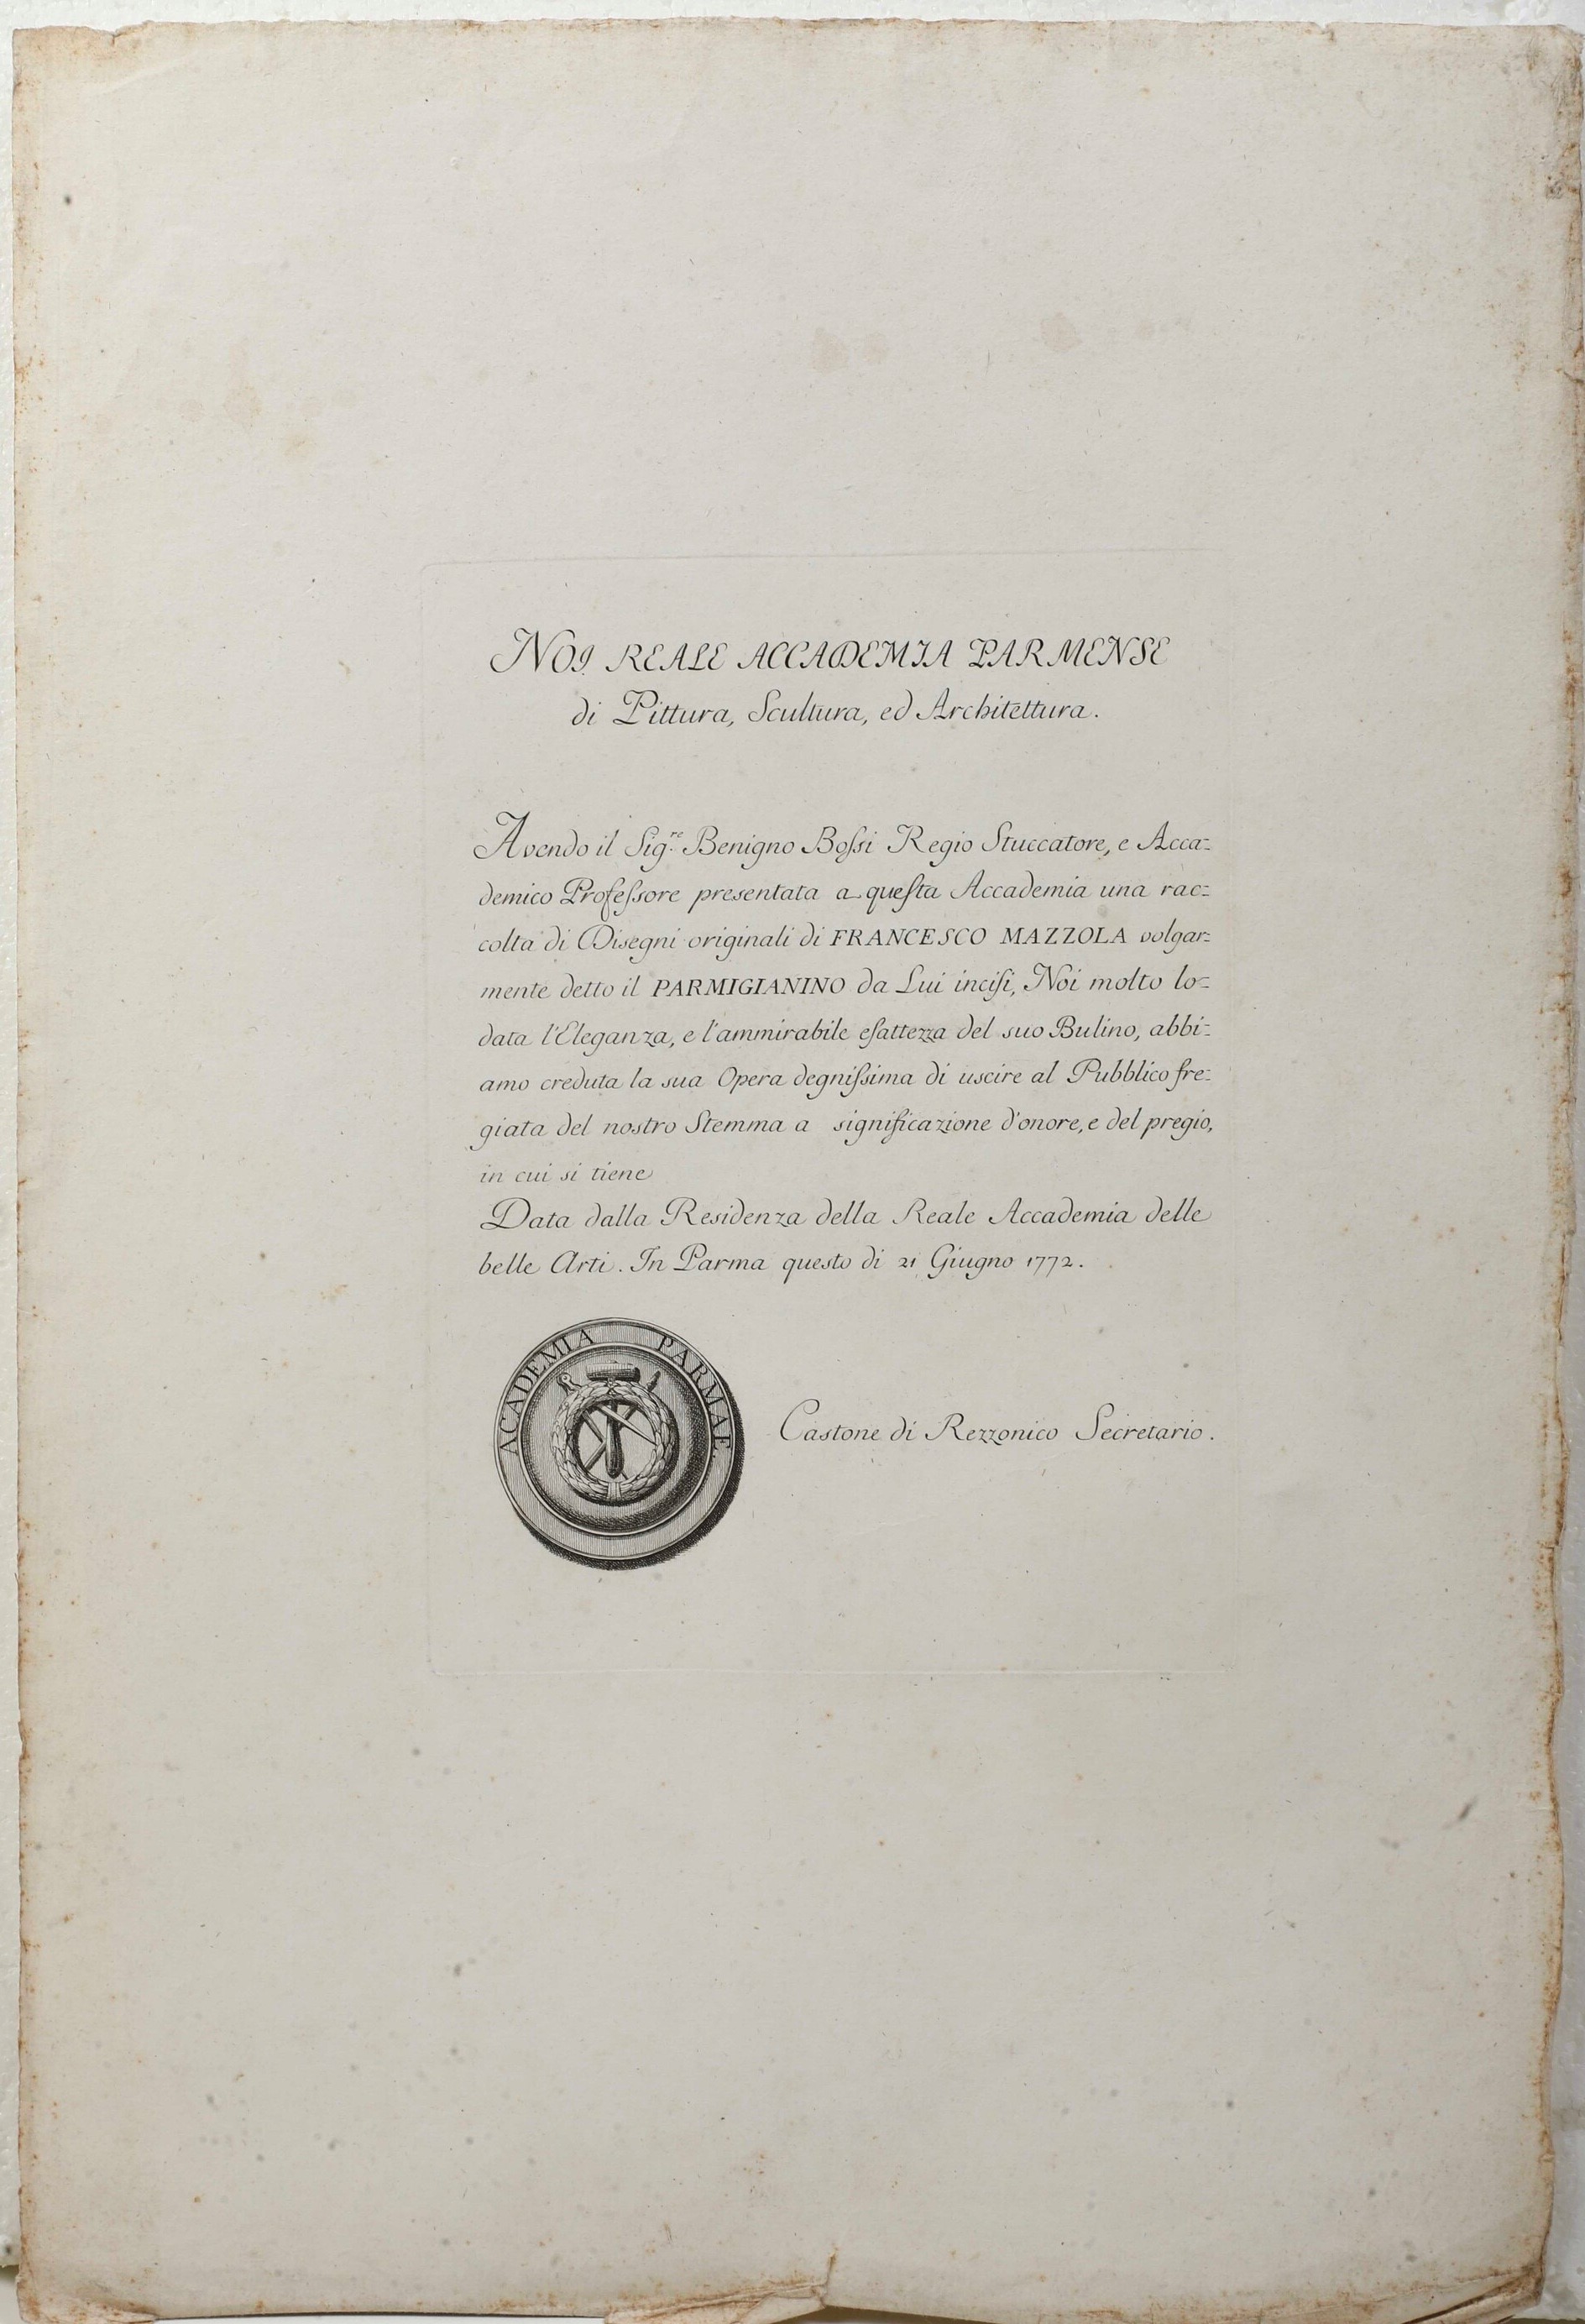 NOI REALE ACCADEMIA PARMENSE
di Pittura, Scultura, ed Architettura.
Avendo il Sig.re Benigno Boſsi Regio Stuccatore, e Acca=
demico Profeſsore presentata a queſta Accademia una rac=
colta di Disegni originali di FRANCESCO MAZZOLA volgar=
mente detto il PARMIGIANINO da Lui inciſi, Noi molto lo=
data l'Eleganza, e l'ammirabile eſattezza del suo Bulino, abbi=
amo creduta la sua Opera degniſsima di uscire al Pubblico fre=
giata del nostro Stemma a significazione d'onore, e del pregio,
in cui si tiene
Data dalla Residenza della Reale Accademia delle
belle Arti. In Parma questo di 21 Giugno 1772.
ACADEMIA PARMAE
Castone di Rezzonico Secretario.